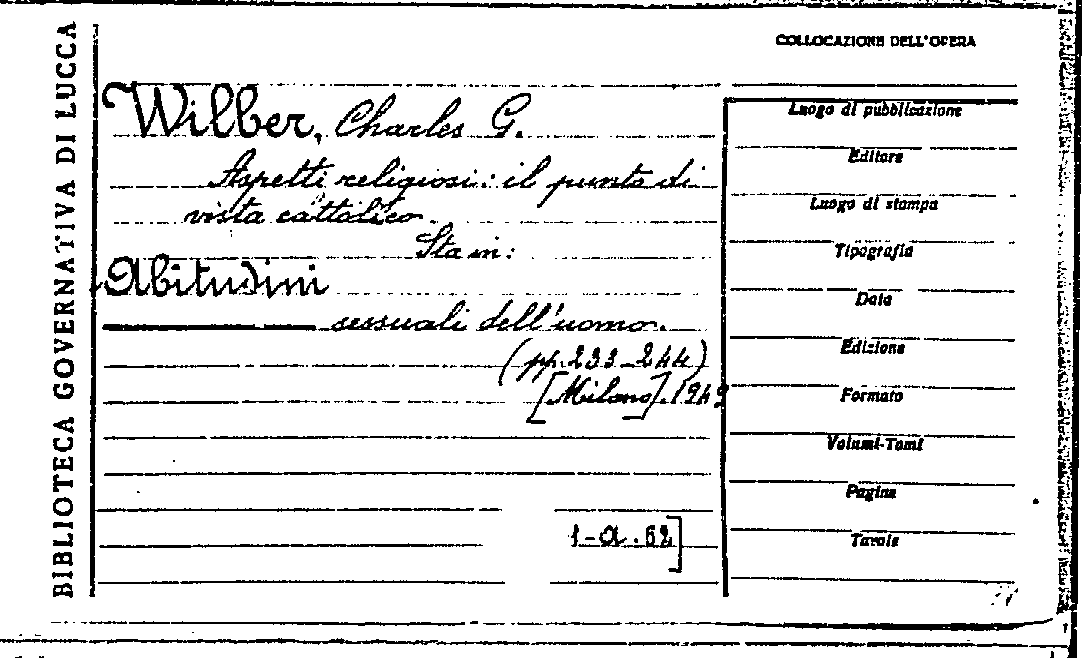 BIBLIOTECA GOVERNATIVA DI LUCCA
COLLOCAZIONE DELL'OPERA
Wilber, Charles G.
Aspetti religiosi: il punto di
vista cattolico.
Sta in:
Abitudini
sessuali dell'uomo.
(pp. 233-244)
[Milano]. 1949
1-a.62]
Luogo di pubblicazione
Editore
Luogo di stampa
Tipografia
Data
Edizione
Formato
Volumi-Tomi
Pagine
Tavole